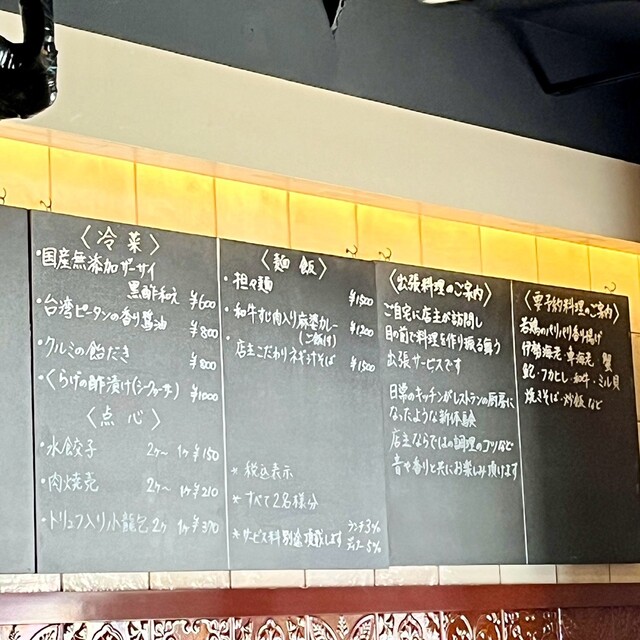 〈冷菜〉
・国産無添加ザーサイ
黒酢和え ¥600
・台湾ピータンの香り醤油
¥800
・クルミの飴だき
¥800
・くらげの酢漬け(シークヮーサー)
¥1000
〈点心〉
・水餃子 2ケ〜 1ケ¥150
・肉焼売 2ケ〜 1ケ¥210
・トリュフ入り小龍包 2ケ 1ケ¥370
〈麺飯〉
・担々麺
¥1500
・和牛すじ肉入り麻婆カレー
(ご飯付) ¥1200
・店主こだわりネギそば
¥1500
*税込表示
*すべて2名様分
*サービス料別途頂戴します ランチ3%
ディナー5%
〈出張料理のご案内〉
ご自宅に店主が訪問し
目の前で料理を作り振る舞う
出張サービスです
日常のキッチンがレストランの厨房に
なったような新体験
店主ならではの調理のコツなど
音や香りと共にお楽しみ頂けます
〈要予約料理のご案内〉
若鶏のパリパリ香り揚げ
伊勢海老・車海老 蟹
鮑・フカヒレ・和牛・ミル貝
焼きそば・炒飯など